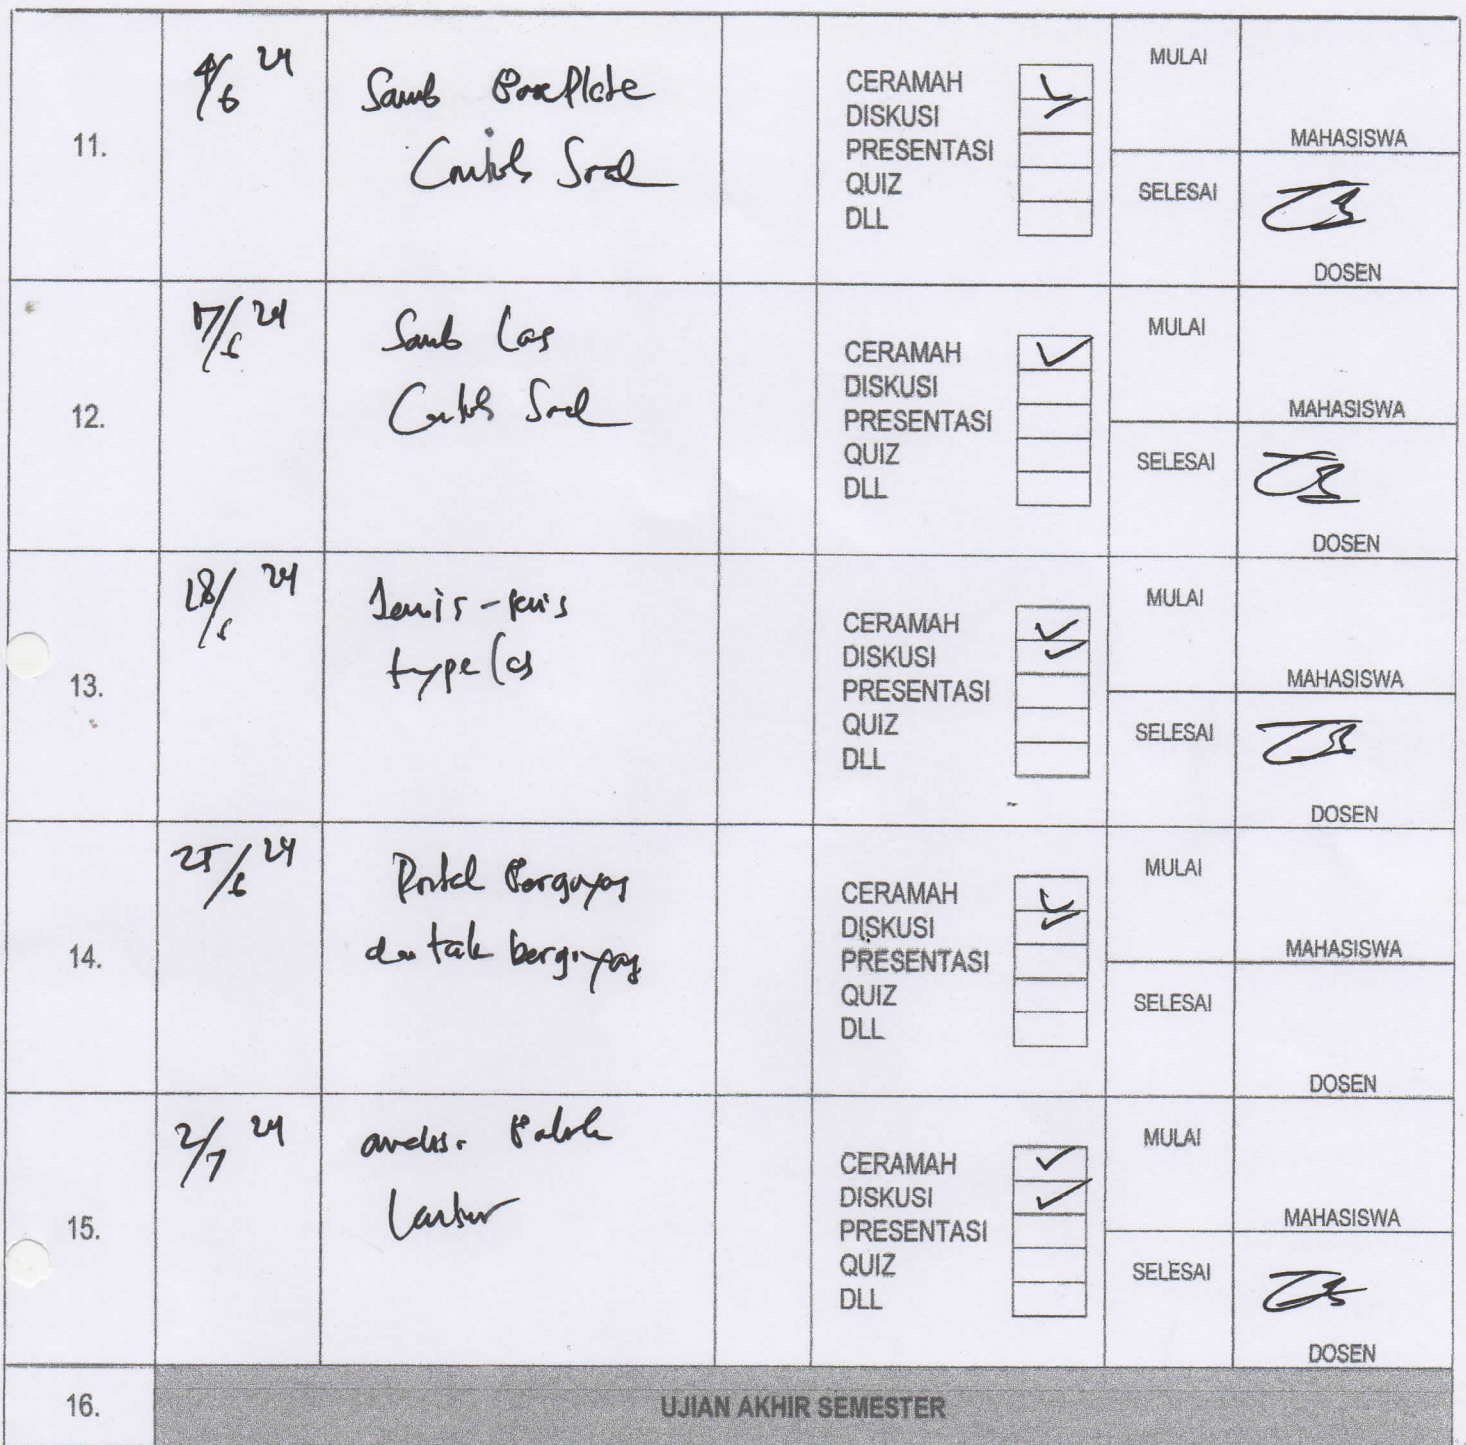 11.
4/6 24
Samb Baseplate
Contoh Soal
CERAMAH
DISKUSI
PRESENTASI
QUIZ
DLL
MULAI
MAHASISWA
SELESAI
DOSEN
12.
24
Samb Las
Contoh Soal
CERAMAH
DISKUSI
PRESENTASI
QUIZ
DLL
MULAI
MAHASISWA
SELESAI
DOSEN
13.
18/6 24
Jenis-jenis
type las
CERAMAH
DISKUSI
PRESENTASI
QUIZ
DLL
MULAI
MAHASISWA
SELESAI
DOSEN
14.
25/6 24
Portal Bergoyang
dan tak bergoyang
CERAMAH
DISKUSI
PRESENTASI
QUIZ
DLL
MULAI
MAHASISWA
SELESAI
DOSEN
15.
2/7 24
analisi Balok
Lentur
CERAMAH
DISKUSI
PRESENTASI
QUIZ
DLL
MULAI
MAHASISWA
SELESAI
DOSEN
16.
UJIAN AKHIR SEMESTER